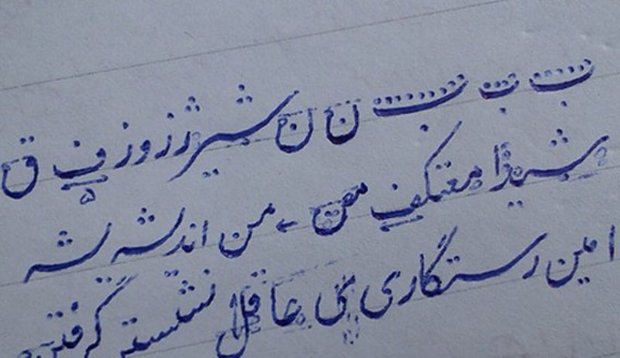 ب ب ب ن ن شیر ژ ز و ز ف ق
معتکف من اندیشه یشه
امین رستگاری بی عاقل نشسته گرفتن